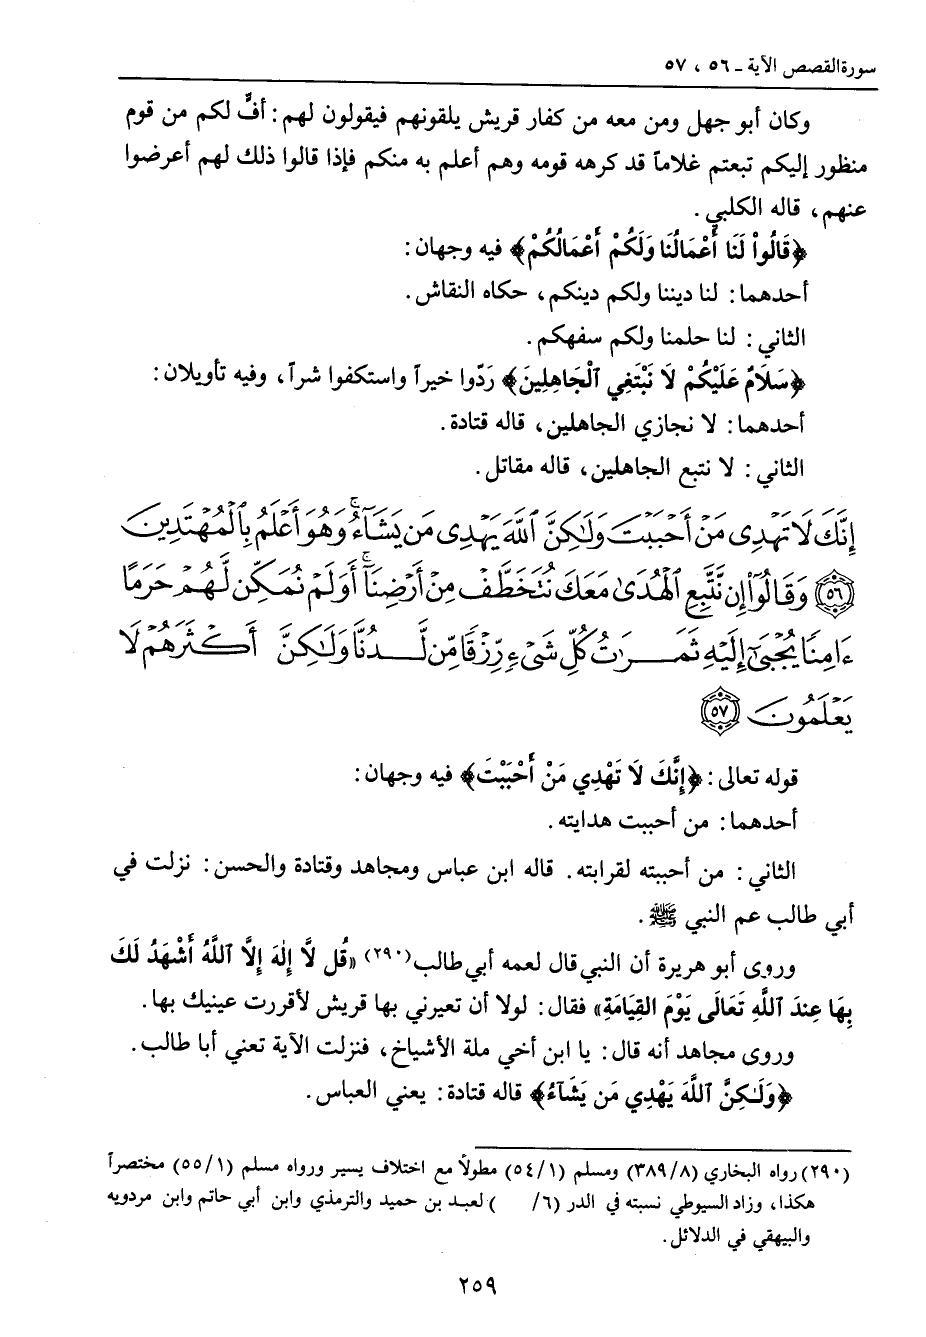 سورة القصص الآية ـ ٥٦ ، ٥٧
وكان أبو جهل ومن معه من كفار قريش يلقونهم فيقولون لهم: أفٍّ لكم من قوم
منظور إليكم تبعتم غلاماً قد كرهه قومه وهم أعلم به منكم فإذا قالوا ذلك لهم أعرضوا
عنهم، قاله الكلبي.
﴿قَالُواْ لَنَا أَعْمَالُنَا وَلَكُمْ أَعْمَالُكُمْ﴾ فيه وجهان:
أحدهما: لنا ديننا ولكم دينكم، حكاه النقاش.
الثاني: لنا حلمنا ولكم سفهكم.
﴿سَلَامٌ عَلَيْكُمْ لَا نَبْتَغِي ٱلْجَاهِلِينَ﴾ ردّوا خيراً واستكفوا شراً، وفيه تأويلان:
أحدهما: لا نجازي الجاهلين، قاله قتادة.
الثاني: لا نتبع الجاهلين، قاله مقاتل.
إِنَّكَ لَا تَهْدِى مَنْ أَحْبَبْتَ وَلَٰكِنَّ ٱللَّهَ يَهْدِى مَن يَشَآءُ ۚ وَهُوَ أَعْلَمُ بِٱلْمُهْتَدِينَ
﴿٥٦﴾ وَقَالُوٓا۟ إِن نَّتَّبِعِ ٱلْهُدَىٰ مَعَكَ نُتَخَطَّفْ مِنْ أَرْضِنَآ ۚ أَوَلَمْ نُمَكِّن لَّهُمْ حَرَمًا
ءَامِنًا يُجْبَىٰٓ إِلَيْهِ ثَمَرَٰتُ كُلِّ شَىْءٍ رِّزْقًا مِّن لَّدُنَّا وَلَٰكِنَّ أَكْثَرَهُمْ لَا
يَعْلَمُونَ ﴿٥٧﴾
قوله تعالى: ﴿إِنَّكَ لَا تَهْدِي مَنْ أَحْبَبْتَ﴾ فيه وجهان:
أحدهما: من أحببت هدايته.
الثاني: من أحببته لقرابته. قاله ابن عباس ومجاهد وقتادة والحسن: نزلت في
أبي طالب عم النبي ﷺ.
وروى أبو هريرة أن النبي قال لعمه أبي طالب(٢٩٠) «قُل لَّا إِلٰهَ إِلَّا ٱللَّهُ أَشْهَدُ لَكَ
بِهَا عِندَ ٱللَّهِ تَعَالَى يَوْمَ القِيَامَةِ» فقال: لولا أن تعيرني بها قريش لأقررت عينيك بها.
وروى مجاهد أنه قال: يا ابن أخي ملة الأشياخ، فنزلت الآية تعني أبا طالب.
﴿وَلَٰكِنَّ ٱللَّهَ يَهْدِي مَن يَشَآءُ﴾ قاله قتادة: يعني العباس.
(٢٩٠) رواه البخاري (٣٨٩/٨) ومسلم (٥٤/١) مطولاً مع اختلاف يسير ورواه مسلم (٥٥/١) مختصراً
هكذا، وزاد السيوطي نسبته في الدر (٦/ ) لعبد بن حميد والترمذي وابن أبي حاتم وابن مردويه
والبيهقي في الدلائل.
٢٥٩